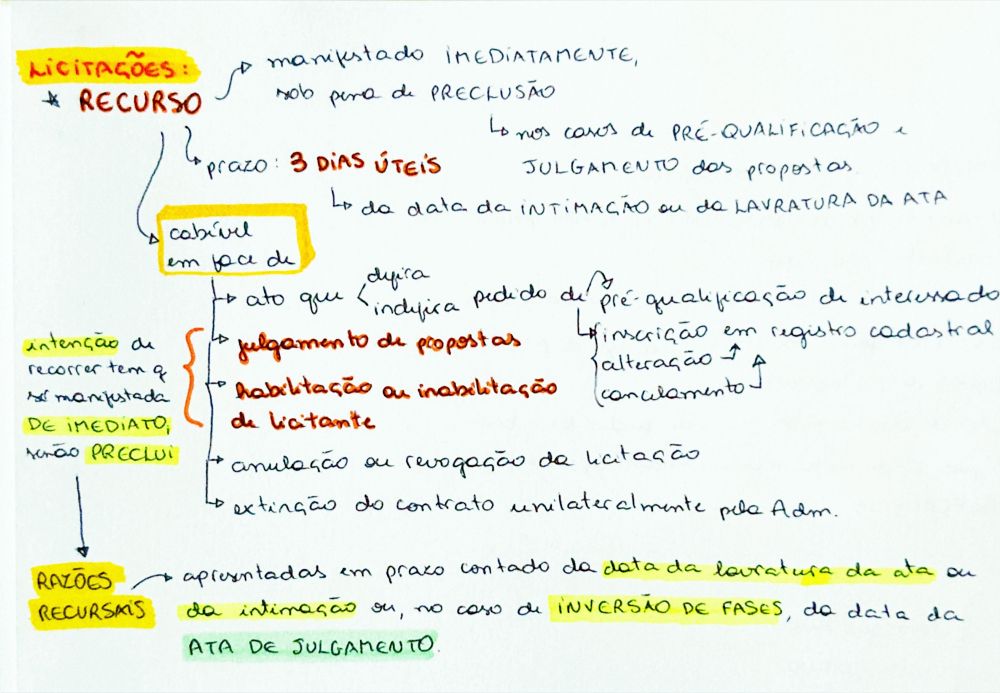 LICITAÇÕES:
* RECURSO
manifestado IMEDIATAMENTE,
sob pena de PRECLUSÃO
nos casos de PRÉ-QUALIFICAÇÃO e
JULGAMENTO das propostas.
prazo: 3 DIAS ÚTEIS
da data da INTIMAÇÃO ou da LAVRATURA DA ATA
cabível
em face de
ato que defira
indefira pedido de pré-qualificação de interessado
inscrição em registro cadastral
alteração
cancelamento
julgamento de propostas
habilitação ou inabilitação
de licitante
intenção de
recorrer tem q
ser manifestada
DE IMEDIATO,
senão PRECLUI
anulação ou revogação da licitação
extinção do contrato unilateralmente pela Adm.
RAZÕES
RECURSAIS
apresentadas em prazo contado da data da lavratura da ata ou
da intimação ou, no caso de INVERSÃO DE FASES, da data da
ATA DE JULGAMENTO.